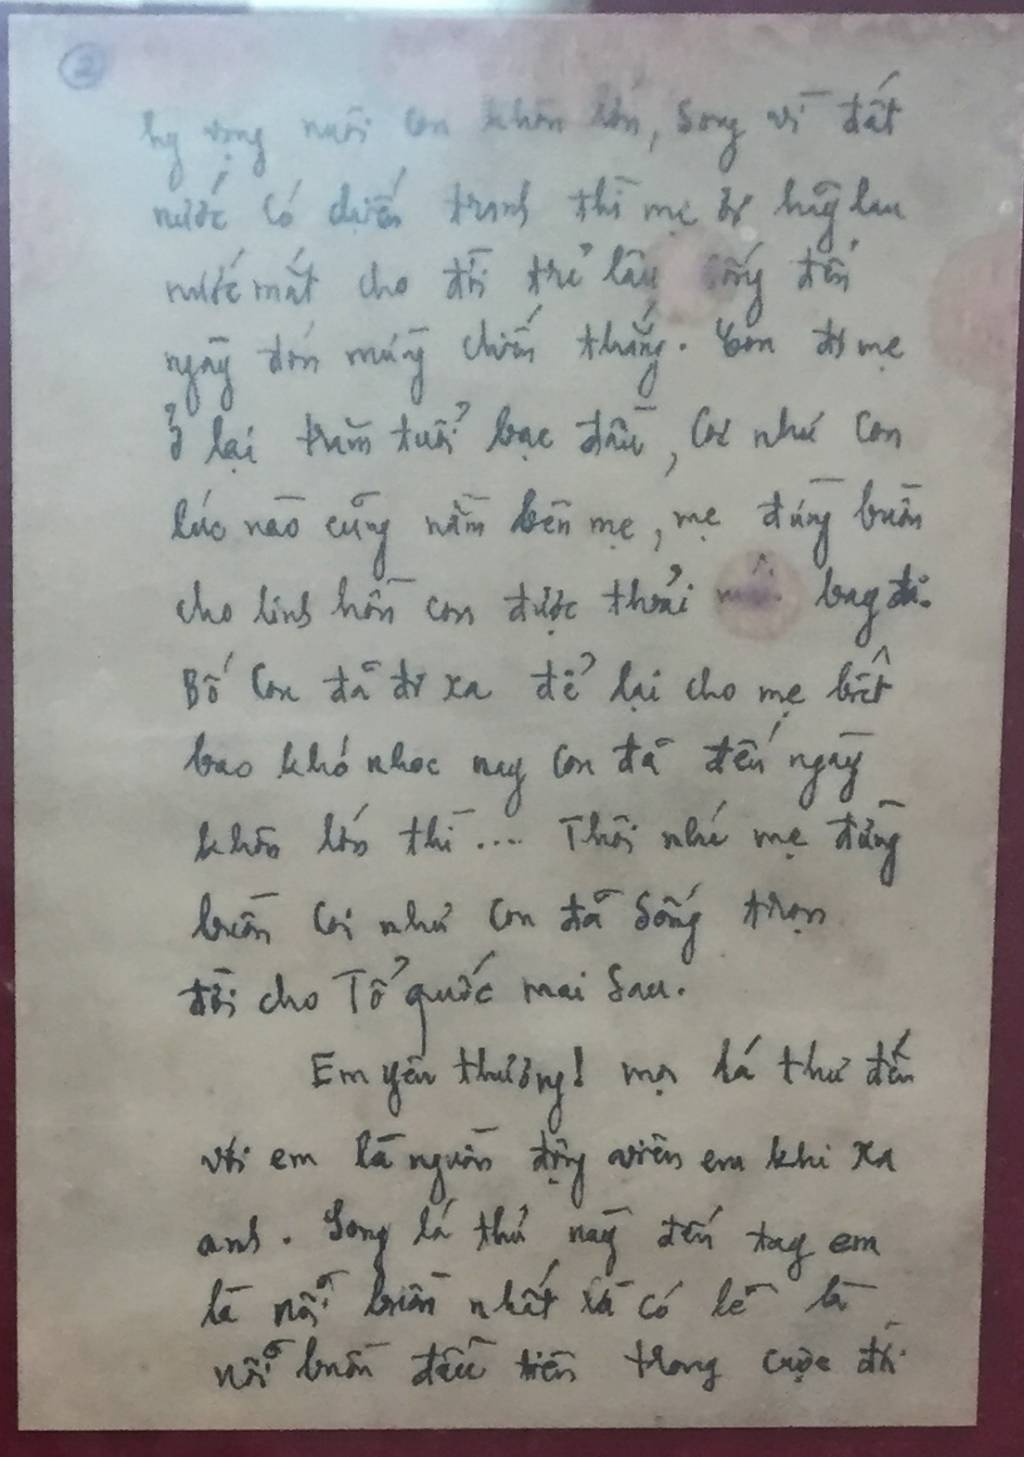 2
hy vọng nuôi con khôn lớn, song vì đất
nước có chiến tranh thì mẹ ơi hãy lau
nước mắt cho đời trẻ lâu sống đến
ngày đón mừng chiến thắng. Con đi mẹ
ở lại trăm tuổi bạc đầu, coi như con
lúc nào cũng nằm bên mẹ, mẹ đừng buồn
cho linh hồn con được thoải mái bay đi.
Bố con đã đi xa để lại cho mẹ biết
bao khó nhọc nay con đã đến ngày
khôn lớn thì .... Thôi nhé mẹ đừng
buồn coi như con đã sống trọn
đời cho Tổ quốc mai sau.
Em yêu thương! mọi lá thư đến
với em là nguồn động viên em khi xa
anh. Song lá thư này đến tay em
là nỗi buồn nhất và có lẽ là
nỗi buồn đầu tiên trong cuộc đời